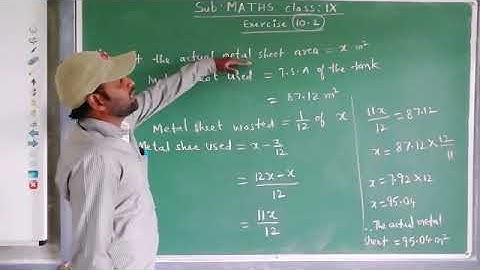 Sub: MATHS class: IX
Exercise (10.2)
the actual metal sheet area = x m²
used = T.S.A of the tank
= 87.12 m²
Metal sheet wasted = 1/12 of x
Metal shee used = x - x/12
= 12x-x/12
= 11x/12
11x/12 = 87.12
x = 87.12 × 12/11
x = 7.92 × 12
x = 95.04
∴ The actual metal
sheet = 95.04 m²